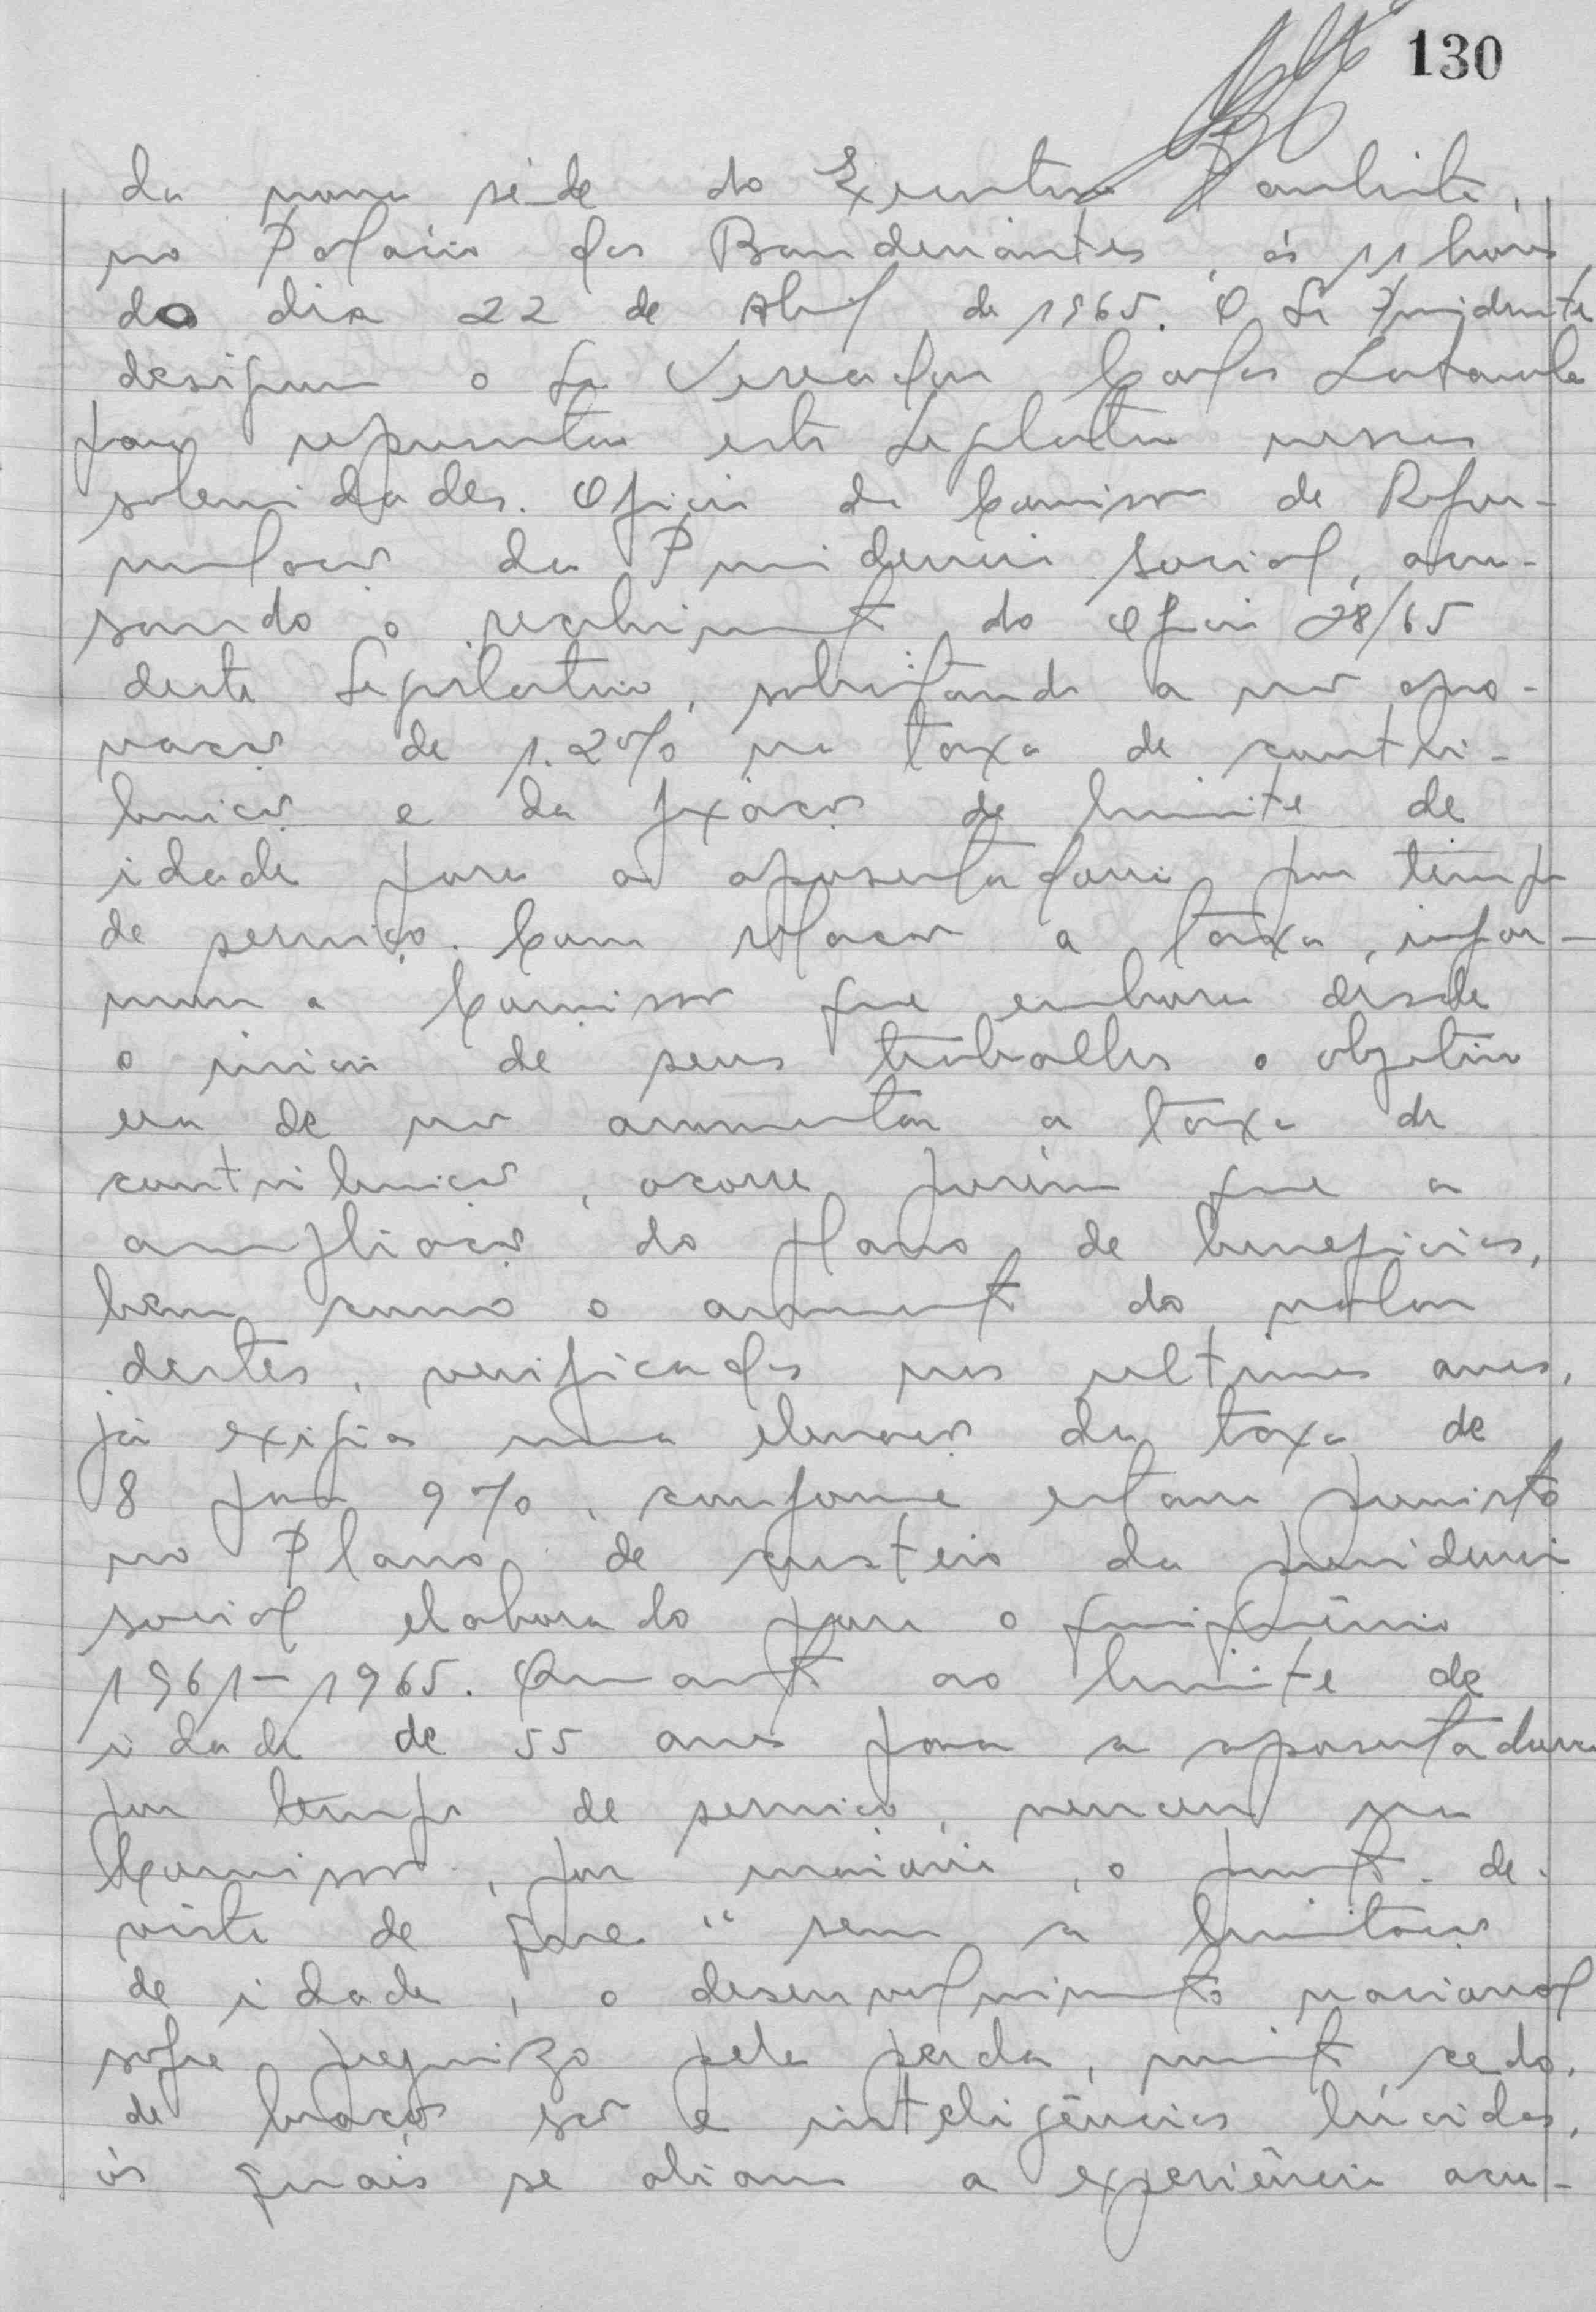 130
da nova séde do Executivo Paulista,
no Palácio dos Bandeirantes, ás 11 horas,
do dia 22 de Abril de 1965. O Sr Presidente
designou o Sr Vereador Carlos
para representar este Legislativo nessas
solenidades. Oficio da Comissão de Refor-
mulação da Previdencia Social, acu-
sando o recebimento do Oficio 28/65
deste Legislativo, solicitando a não apro-
vação de 1.20% na taxa de contri-
buição e da fixação de limite de
idade para a aposentadoria por tempo
de serviço. Com relação a taxa, infor-
mou a Comissão que embora desde
o inicio de seus trabalhos o objetivo
era de não aumentar a taxa de
contribuição, ocorre porém que a
ampliação do plano de beneficios,
bem como o aumento do valor
destes, verificados nos ultimos anos,
já exigia uma elevação da taxa de
8 para 9%, conforme estava previsto
no Plano de custeio da previdencia
social elaborado para o quinquênio
1961-1965. Quanto ao limite de
idade de 55 anos para a aposentadoria
por tempo de serviço, venceu na
Comissão, por maioria, o ponto de
vista de que "sem a limitação
de idade, o desenvolvimento nacional
sofre prejuizo pela perda, muito cedo,
de braços e inteligências lúcidas,
ás quais se aliam a experiência acu-